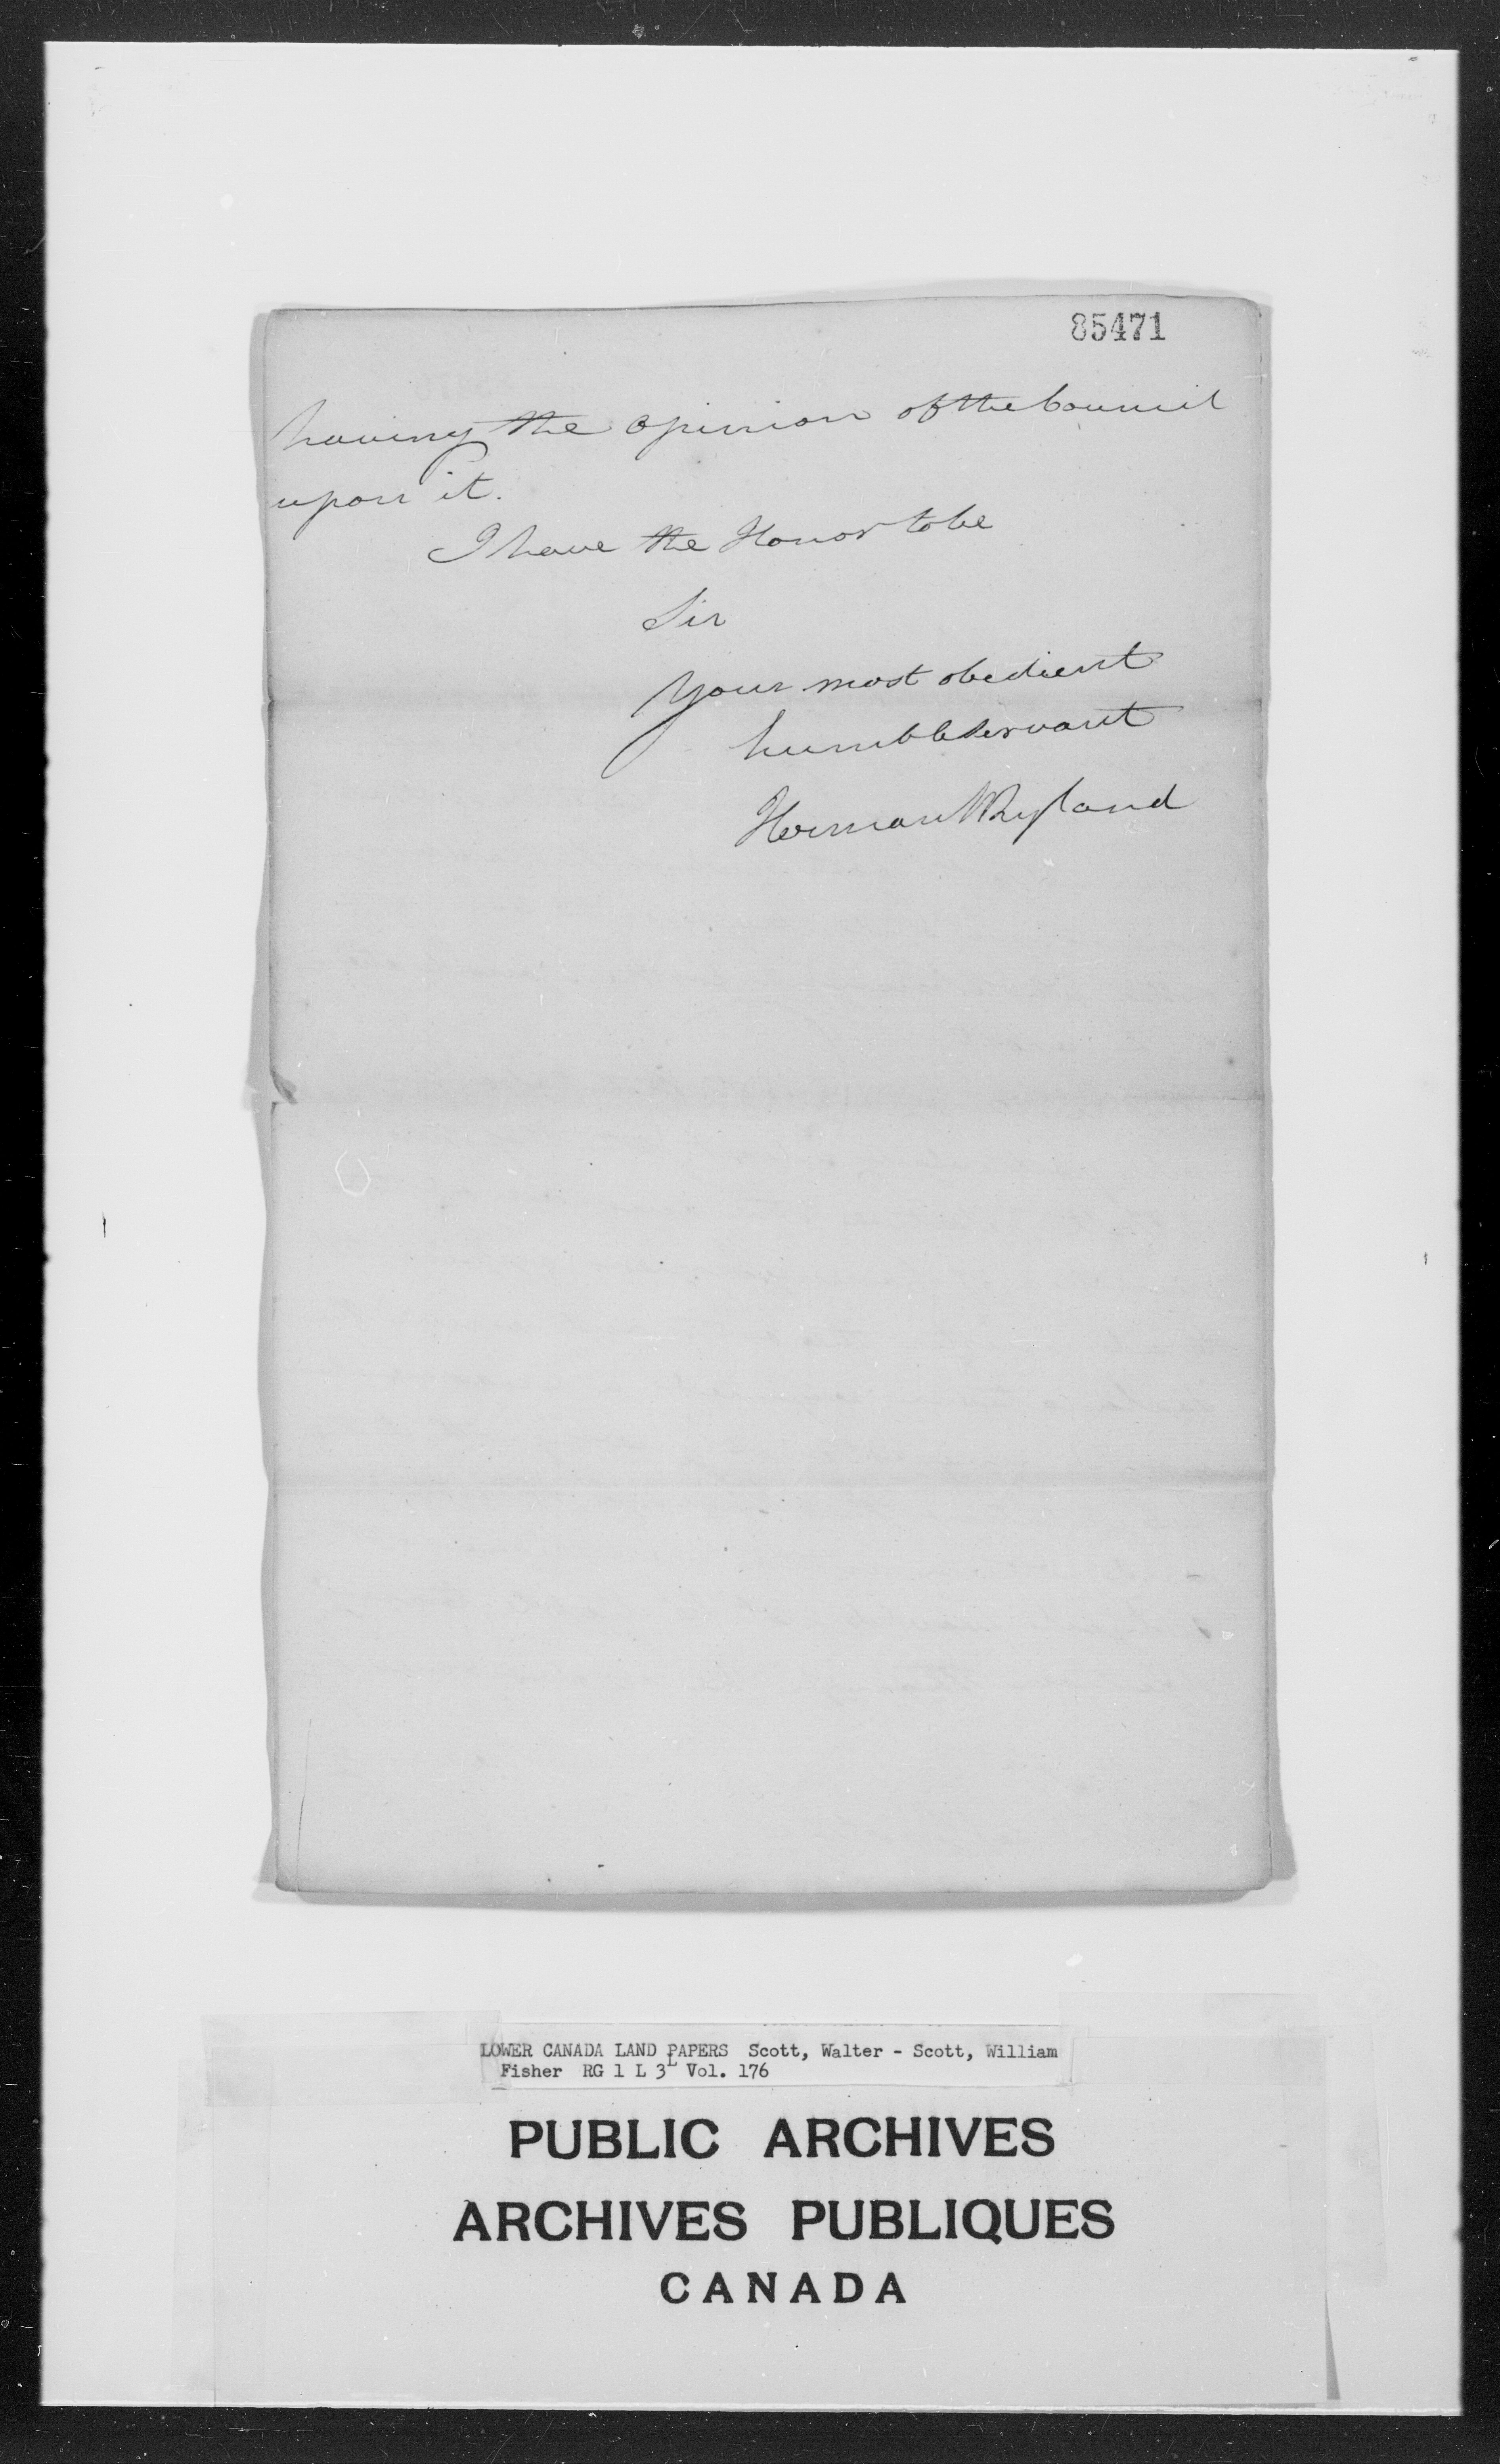 85471
having the opinion of the Council
upon it.
I have the Honor to be
Sir
Your most obedient
humble servant
Herman W Ryland
LOWER CANADA LAND PAPERS Scott, Walter - Scott, William
Fisher RG 1 L 3L Vol. 176
PUBLIC ARCHIVES
ARCHIVES PUBLIQUES
CANADA